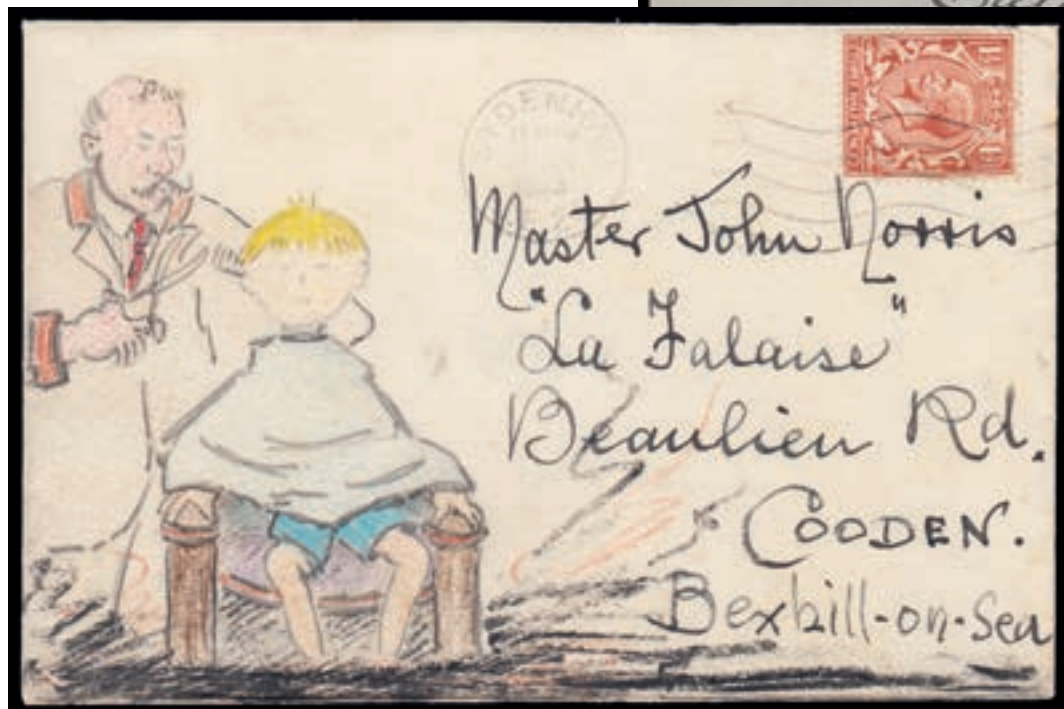 Master John Norris
"La Falaise"
Beaulieu Rd.
COODEN.
Bexhill-on-Sea